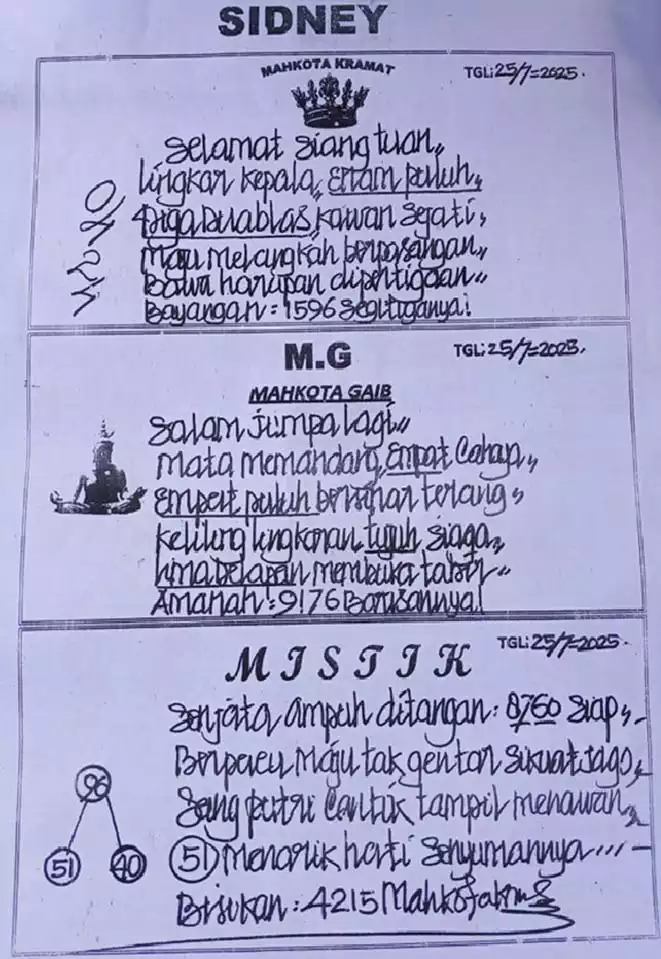 SIDNEY
MAHKOTA KRAMAT
TGL: 25/7=2025.
Selamat siang tuan,,
lingkar kepala, Enam puluh,
Tiga Duablas, kawan sejati,
Maju melangkah berpasangan,,
Bawa harapan dipertigaan,,
Bayangan: 1596 segitiganya!
M.G
TGL: 25/7=2025.
MAHKOTA GAIB
Salam jumpa lagi,,
Mata memandang, Empat Cahaya,,
Empat puluh bersinar terang,
Keliling lingkaran, tujuh siaga,,
Lima Delapan membuka tabir,,
Amanah: 9176 Barusannya!
MISTIK
TGL: 25/7=2025.
Senjata ampuh ditangan: 8760 siap,,
Berpacu Maju tak gentar sikuat Jago,
Sang putri cantik tampil menawan,,
96
51
40
51 Menarik hati senyumannya...
Bisikan: 4215